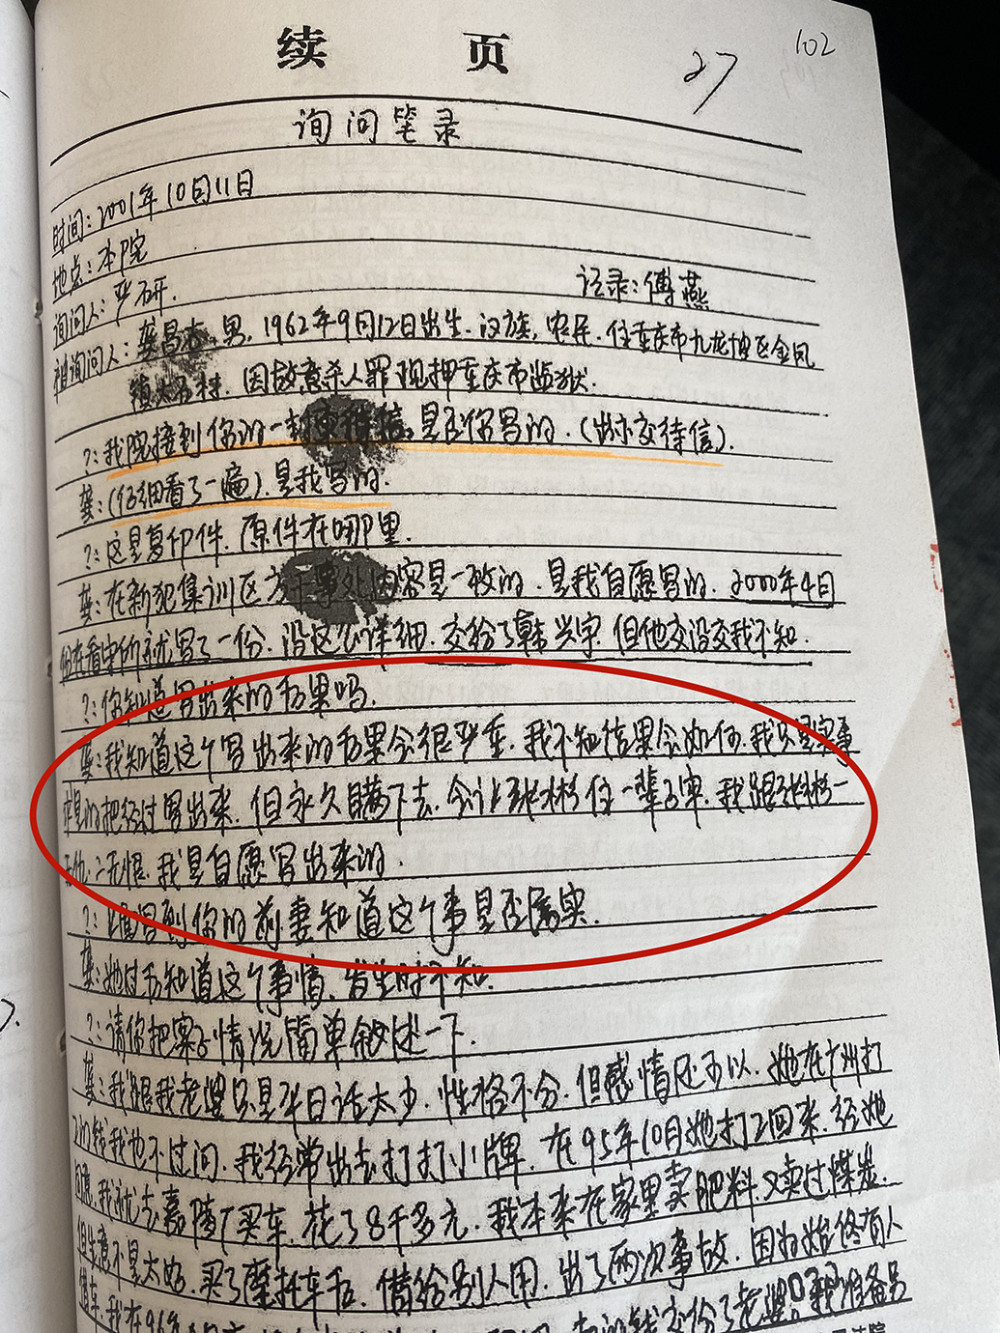 续 页
27
102
询问笔录
时间:2001年10月11日
地点:本院
询问人:严研. 记录:傅燕
被询问人:龚昌 男,1962年9月12日出生.汉族,农民.住重庆市九龙坡区金凤
镇 村.因故意杀人罪现押重庆市监狱.
?:我院接到你的一封 信,是否你写的.(出示交待信).
龚:(仔细看了一遍).是我写的.
?:这是复印件.原件在哪里.
龚:在新犯集训区方干事处内容是一致的.是我自愿写的.2000年4月
份在看守所就写了一份.没这么详细.交给了韩兴宇.但他交没交我不知.
?:你知道写出来的后果吗.
龚:我知道这个写出来的后果会很严重.我不知结果会如何.我只是实事
求是的把经过写出来.但永久瞒下去.会让张彬住一辈子牢.我跟张彬一
无仇.二无恨.我是自愿写出来的.
?:上面写到你的前妻知道这个事是否属实.
龚:她过后知道这个事情.发生时不知.
?:请你把案子情况简单叙述一下.
龚:我跟我老婆只是平日话太少.性格不合.但感情还可以.她在广州打
工的钱我也不过问.我经常出去打打小牌.在95年10月她打工回来.经她
同意.我就去嘉陵厂买车.花了8千多元.我本来在家里卖肥料.又卖过煤炭.
但生意不是太好.买了摩托车后.借给别人用.出了两次事故.因为始终有人
借车.我在96年 钱交给了老婆.我准备另